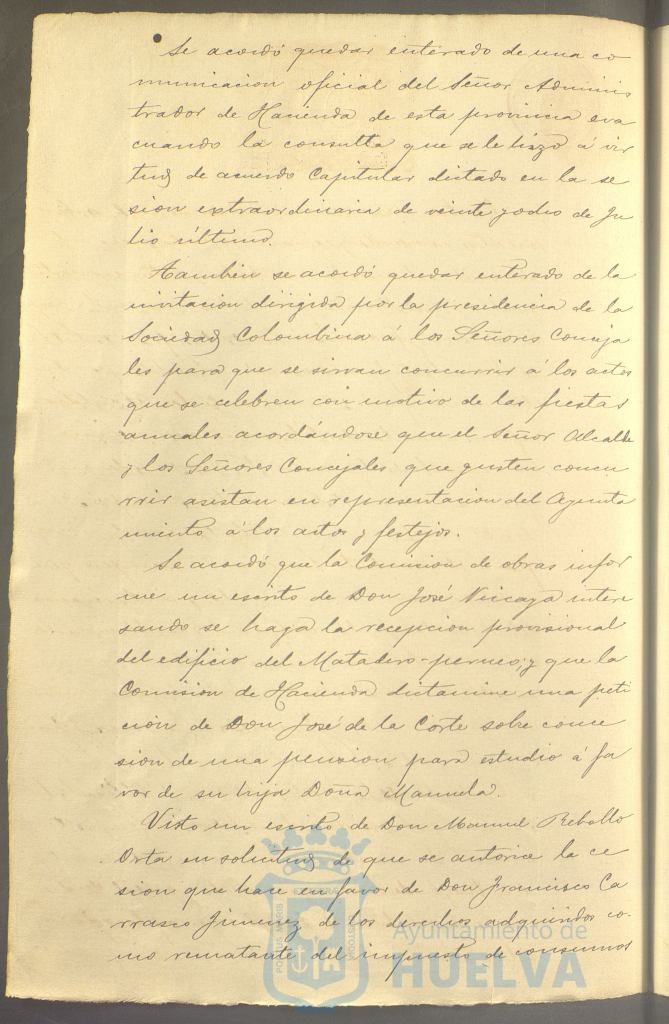 Se acordó quedar enterado de una co
municacion oficial del Señor Adminis
trador de Hacienda de esta provincia eva
cuando la consulta que se le hizo á vir
tud de acuerdo Capitular dictado en la se
sion extraordinaria de veinte y ocho de Ju
lio último.
Tambien se acordó quedar enterado de la
invitacion dirigida por la presidencia de la
Sociedad Colombina á los Señores Conceja
les para que se sirvan concurrir á los actos
que se celebren con motivo de las fiestas
anuales acordándose que el Señor Alcalde
y los Señores Concejales que gusten concu
rrir asistan en representacion del Ayunta
miento á los actos y festejos.
Se acordó que la Comision de obras infor
me un escrito de Don José Vizcaya intere
sando se haga la recepcion provisional
del edificio del Matadero-perneo; y que la
Comision de Hacienda dictamine una peti
cion de Don José de la Corte sobre conce
sion de una pension para estudio á fa
vor de su hija Doña Manuela.
Visto un escrito de Don Manuel Rebollo
Orta en solicitud de que se autorice la ce
sion que hace en favor de Don Francisco Ca
rrasco Jimenez de los derechos adquiridos co
mo rematante del impuesto de consumos
Ayuntamiento de
HUELVA